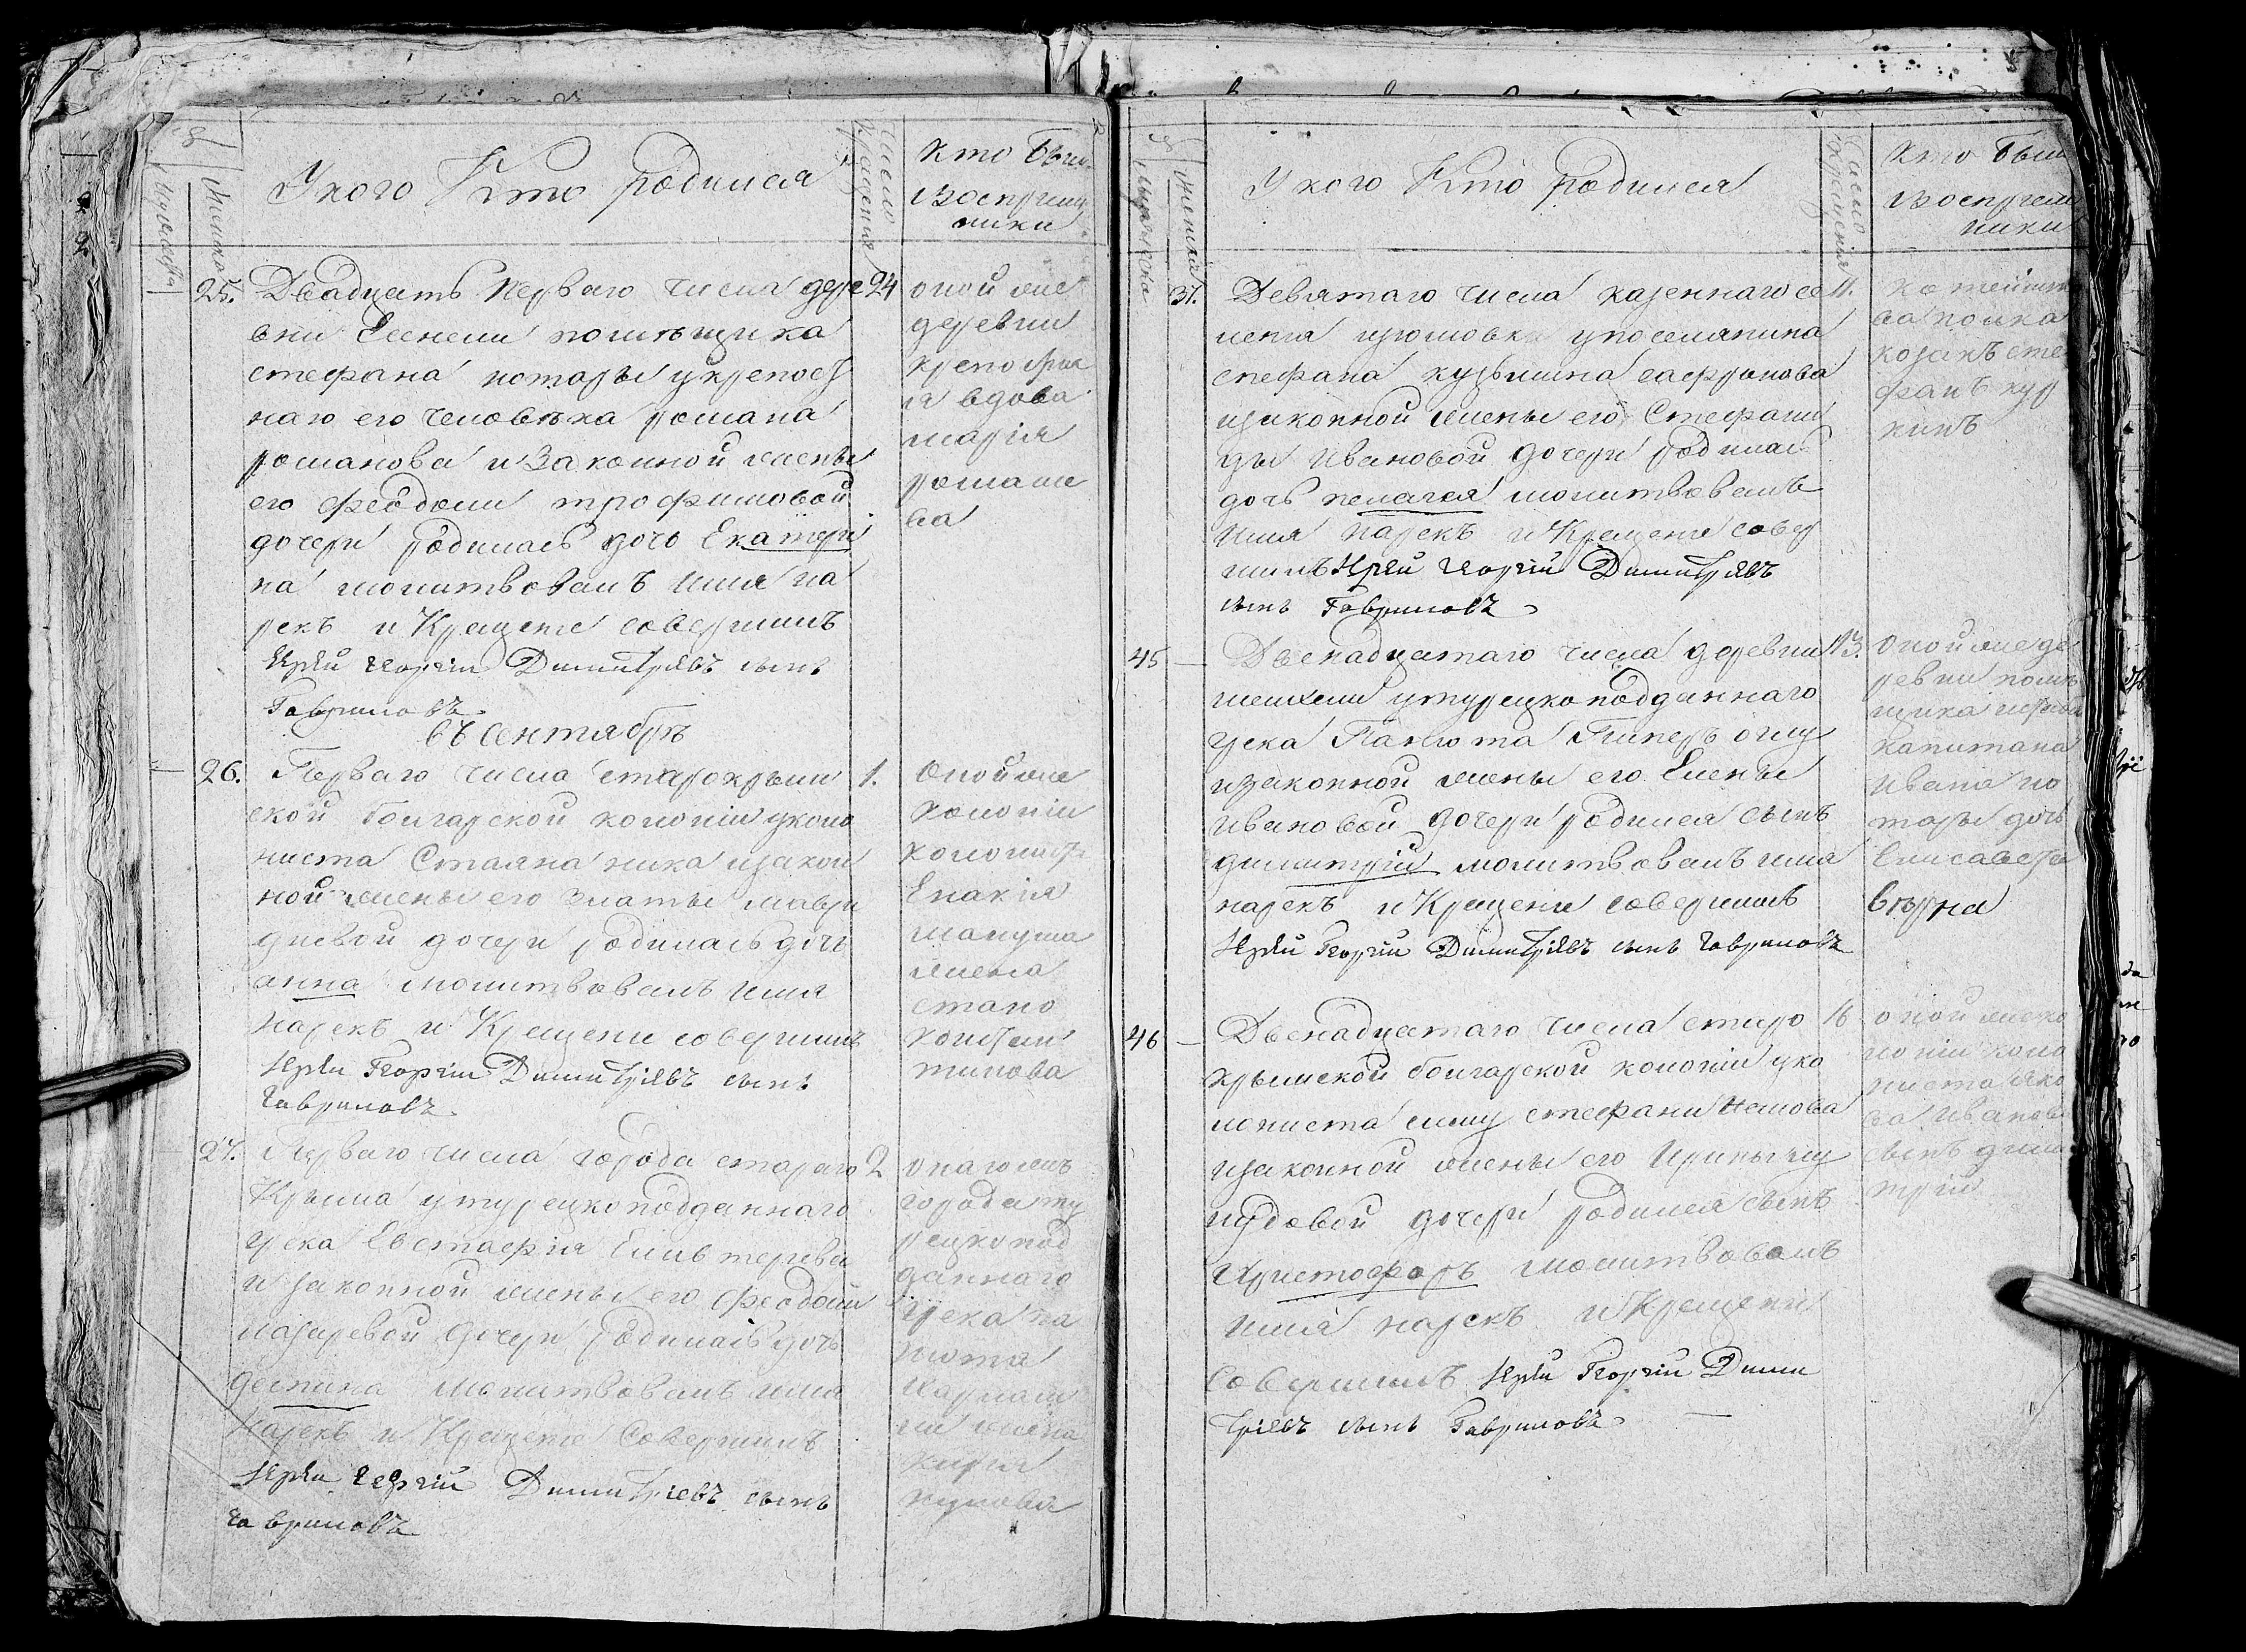 У кого Кто родился
число крещения
Кто были
восприем
ники
Мужеска
Женска
25. Двадцать перваго числа дере 24
вни помѣщика
стефана ноторы у крепост
наго его человѣка романа
романова и законной жены
его феодоси трофимовой
дочери родилась дочь Екатери
на молитвовалъ имя на
рекъ и Крещение совершилъ
Иерей Георгій Димитріевъ сынъ
Гавриловъ.
оной же
деревни
крепостна
я вдова
марія
романо
ва
въ сентябрѣ
26. Перваго числа старокрым 1.
ской болгарской колоніи у коло
ниста Стаяна ника и закон
ной жены его Златы
дочери родилась дочь
анна молитвовалъ имя
нарекъ и Крещение совершилъ
Иерей Георгій Димитріевъ сынъ
Гавриловъ.
Оной же
Колоніи
колонист
жена
стано
констан
тинова
27. Перваго числа города стараго 2
Крыма у турецкоподданнаго
грека Евстафія
и законной жены его феодоси
лазаревой дочери родилась дочь
деспина молитвовалъ имя
нарекъ и Крещение Совершилъ
Иерей Георгій Димитріевъ сынъ
Гавриловъ
онаго жъ
города ту
рецкопод
даннаго
грека па
нюта
жена
У кого Кто родился
число крещения
Кто были
восприем
ники
Мужеска
Женска
37. Девятаго числа казеннаго се 11.
ления изюмовки у поселянина
стефана кузьмина сафронова
и законной жены его Стефани
ды Ивановой дочери родилась
дочь пелагея молитвовалъ
имя нарекъ и Крещение совер
шилъ Иерей Георгій Димитріевъ
сынъ Гавриловъ
ва полка
козакъ сте
фанъ кур
кинъ
45 Двенадцатаго числа деревни 13.
у турецкоподданнаго
грека Панюта
и законной жены его Елены
Ивановой дочери родился сынъ
димитрій молитвовалъ имя
нарекъ и Крещение совершилъ
Иерей Георгій Димитріевъ сынъ Гавриловъ
Оной же де
ревни помѣ
щика
капитана
Ивана но
тары дочь
Елисавета
вѣрна
46 Двенадцатаго числа старо 16
крымской болгарской колоніи у ко
лониста
и законной жены его Ирины
дочери родился сынъ
Христофоръ молитвовалъ
имя нарекъ и Крещение
Совершилъ Иерей Георгій Дими
тріевъ сынъ Гавриловъ
оной же ко
лоніи коло
ниста яко
ва Иванова
сынъ дими
трий